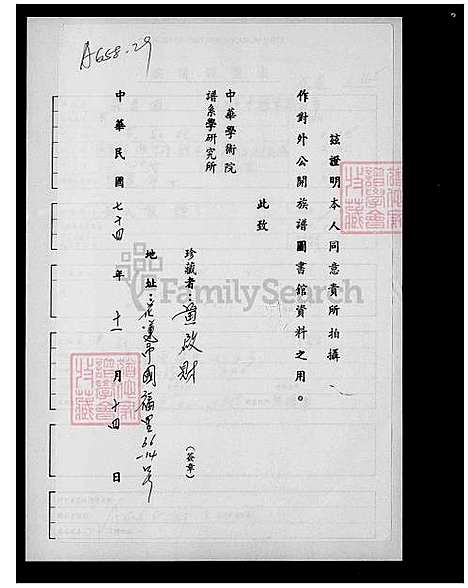 A658-29
茲證明本人同意貴所拍攝
作對外公開族譜圖書館資料之用。
此致
中華學術院
譜系學研究所
珍藏者:黃啟財(簽章)
地址:花蓮市國福里66-14号
中華民國七十四年十一月十四日
FamilySearch